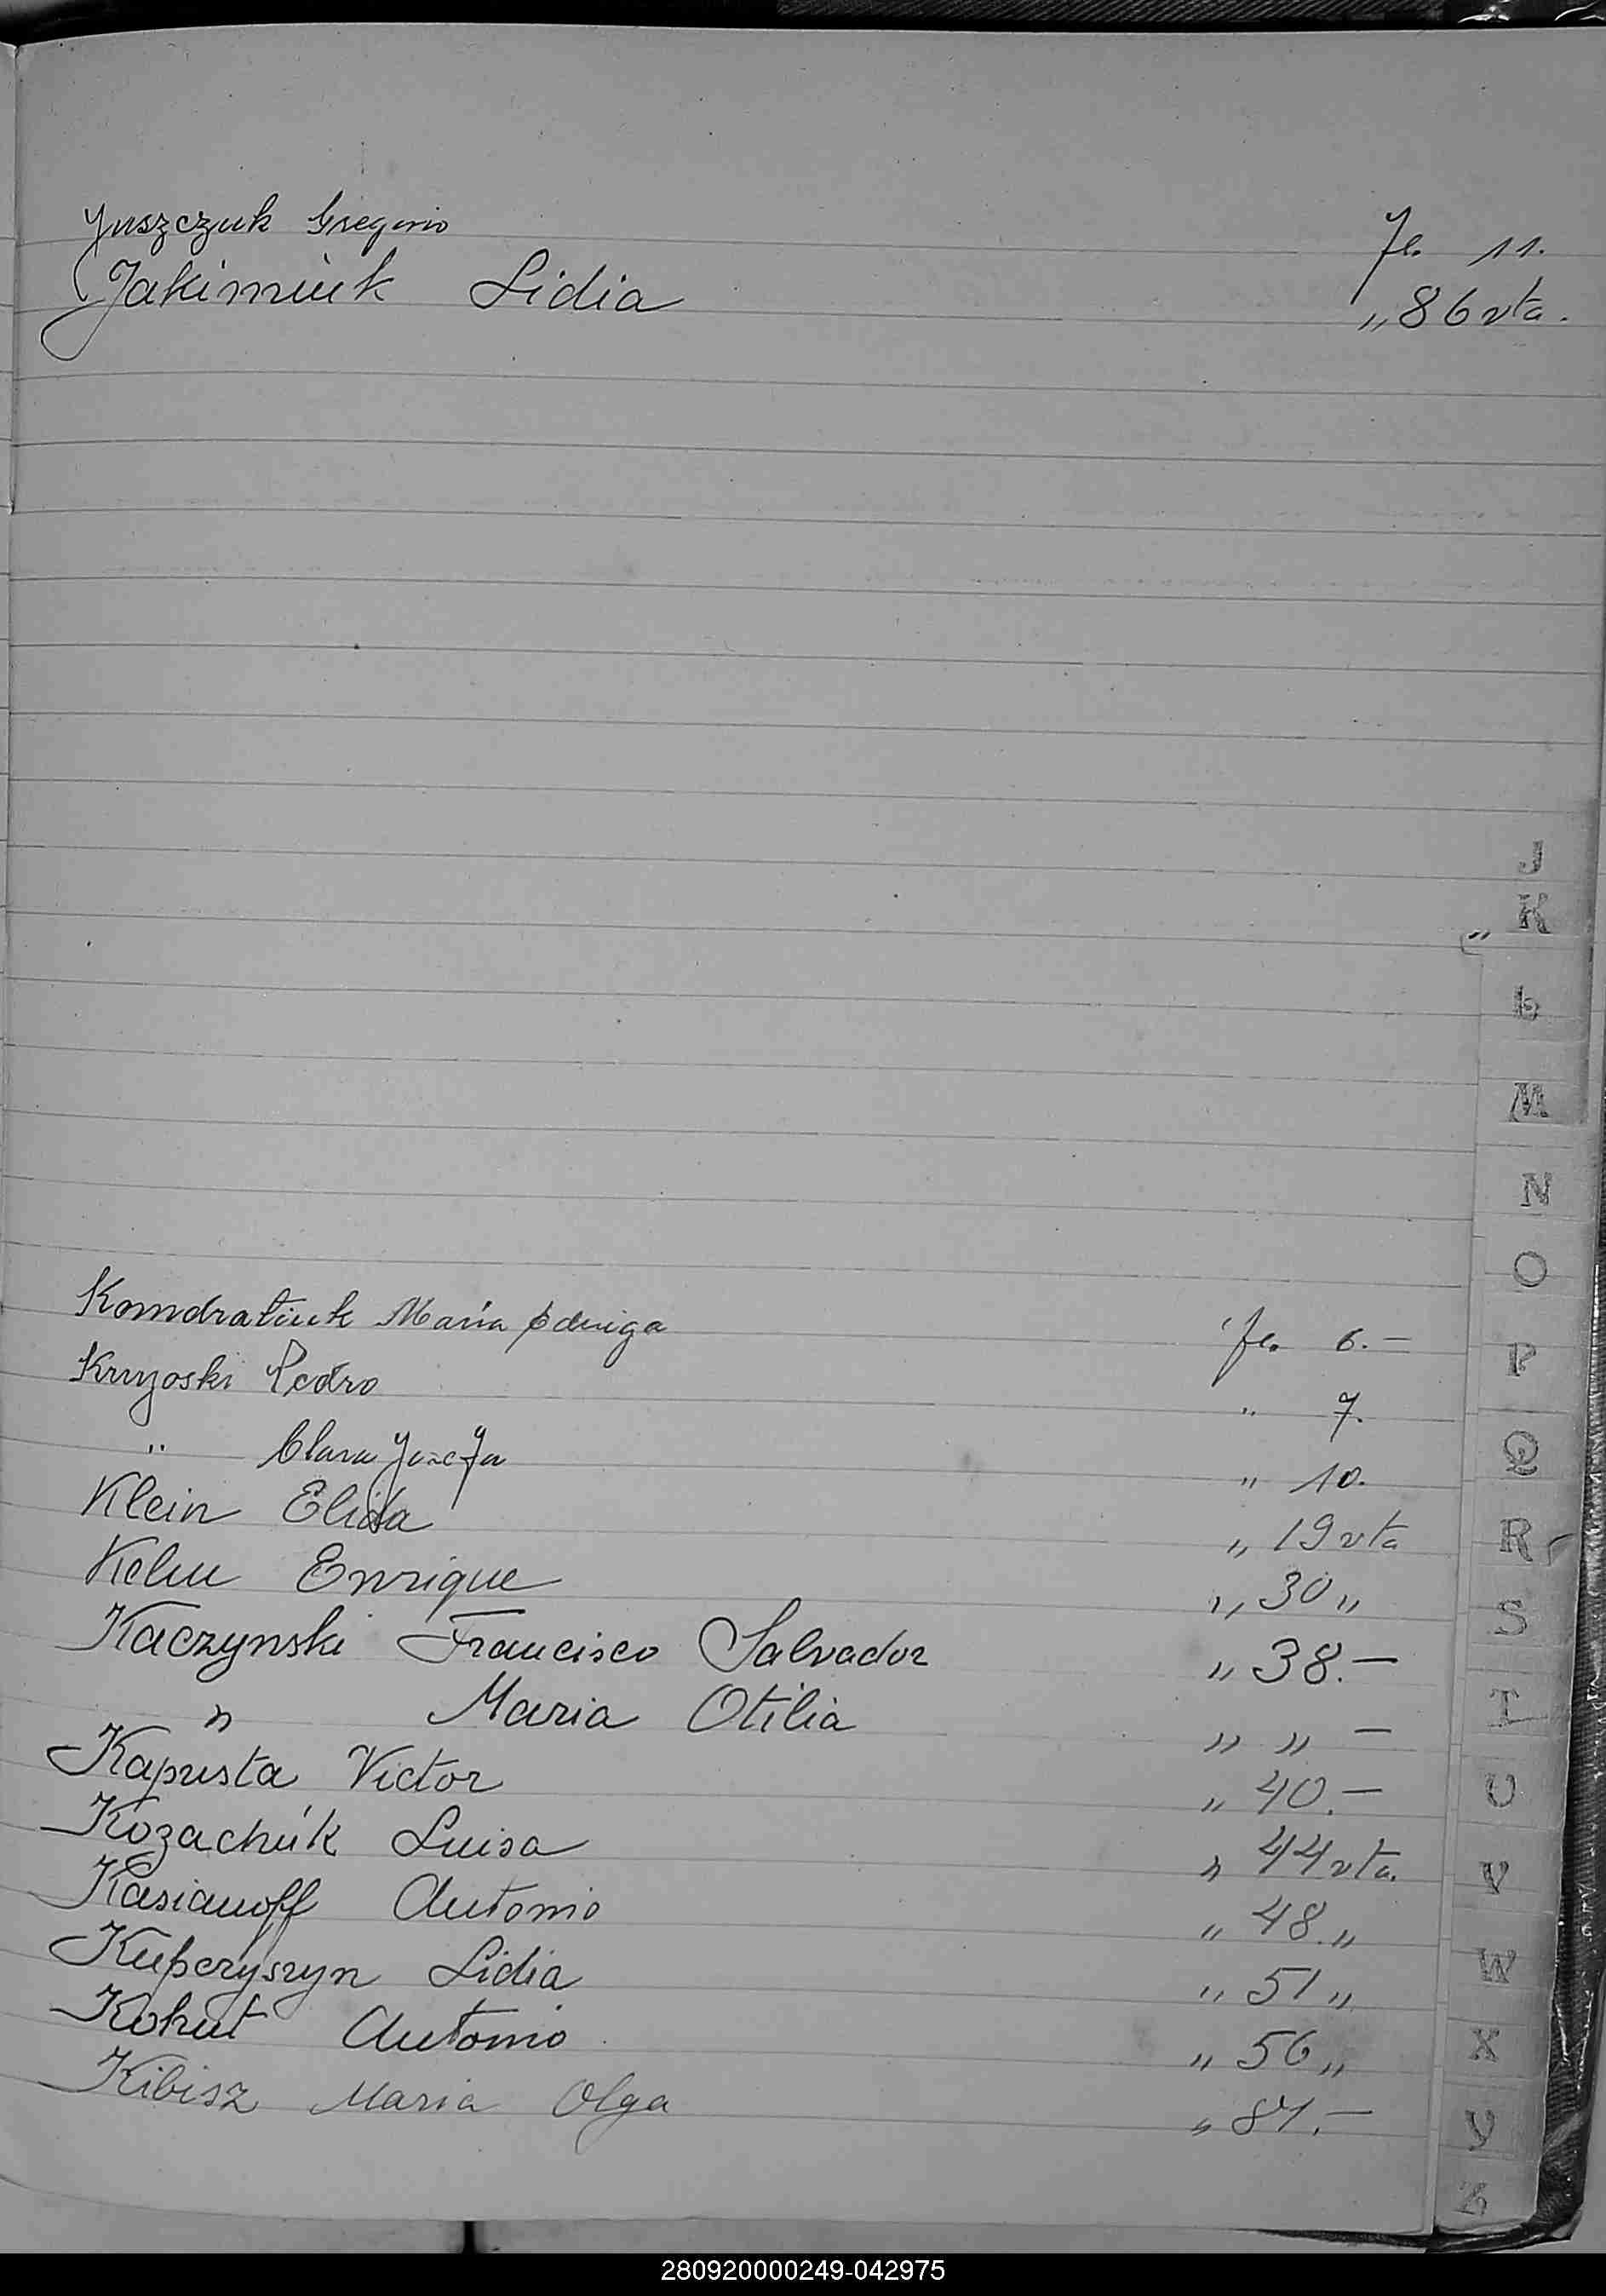 Juszczuk Gregorio Fo. 11.
Jakimiuk Lidia " 86 vta.
J
K
L
M
N
O
P
Q
R
S
T
U
V
W
X
Y
Z
Kondratiuk María Fo. 6.-
Pedro " 7.
" Clara Josefa " 10.
Klein Elida " 19 vta
Enrique " 30 "
Kaczynski Francisco Salvador " 38.-
" Maria Otilia " " -
Kapusta Victor " 40.-
Kozachúk Luisa " 44 vta.
Kasianoff Antonio " 48. "
Kuperyszyn Lidia " 51 "
Kohut Antonio " 56 "
Kibisz Maria Olga
280920000249-042975